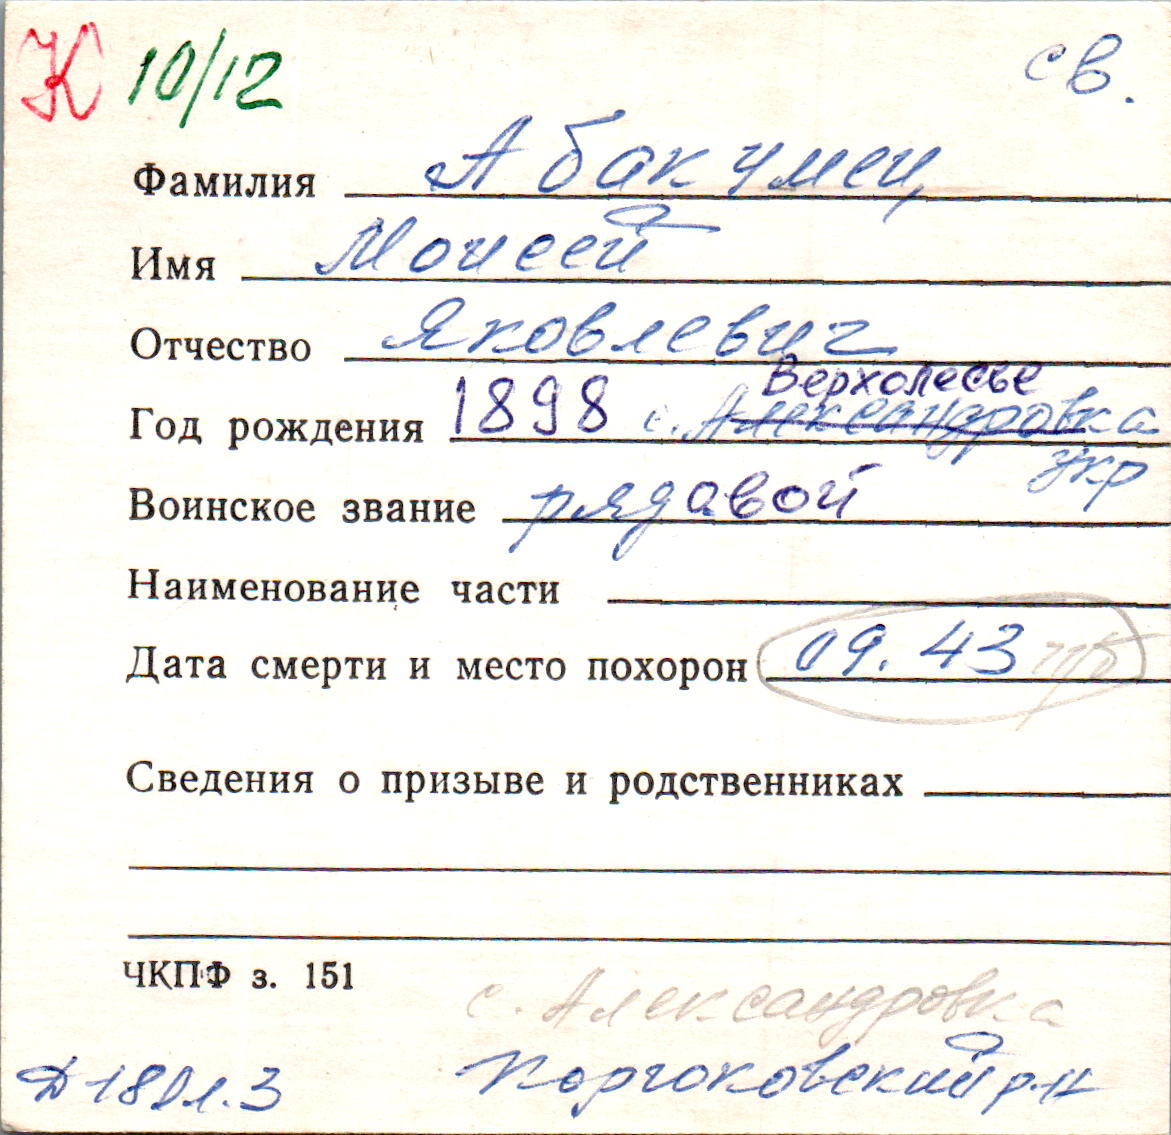 К 10/12 св.
Фамилия Абакумец
Имя Моисей
Отчество Яковлевич
Верхолесье
Год рождения 1898 с. Александровка
укр
Воинское звание рядавой
Наименование части
Дата смерти и место похорон 09.43
Сведения о призыве и родственниках
ЧКПФ з. 151
с. Александровка
Корюковский р-н